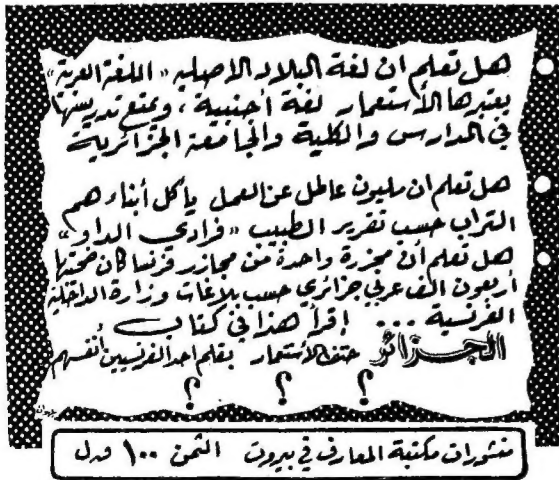 هل تعلم ان لغة البلاد الأصلية « اللغة العربية »
يعتبرها الأستعمار لغة أجنبية ، ويمنع تدريسها
في المدارس والكلية والجامعة الجزائرية
هل تعلم ان مليون عاطل عن العمل يأكل أبناءهم
التراب حسب تقرير الطبيب « فرادى الداو »
هل تعلم أن مجزرة واحدة من مجازر فرنسا كان ضحيتها
أربعون الف عربي جزائري حسب بلاغات وزارة الداخلية
الفرنسية ... إقرأ هذا في كتاب
الجزائر حتف الأستعمار بقلم احد الفرنسيين أنفسهم
؟ ؟ ؟
منشورات مكتبة المعارف في بيروت الثمن ١٠٠ ق.ل